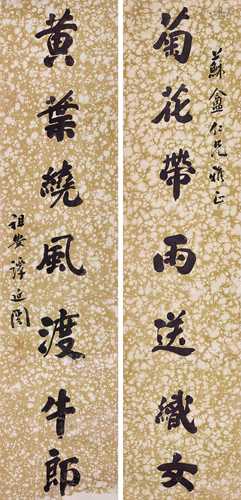 菊花帶雨送織女
蘇盦仁兄雅正
黃葉繞風渡牛郎
祖安譚延闓